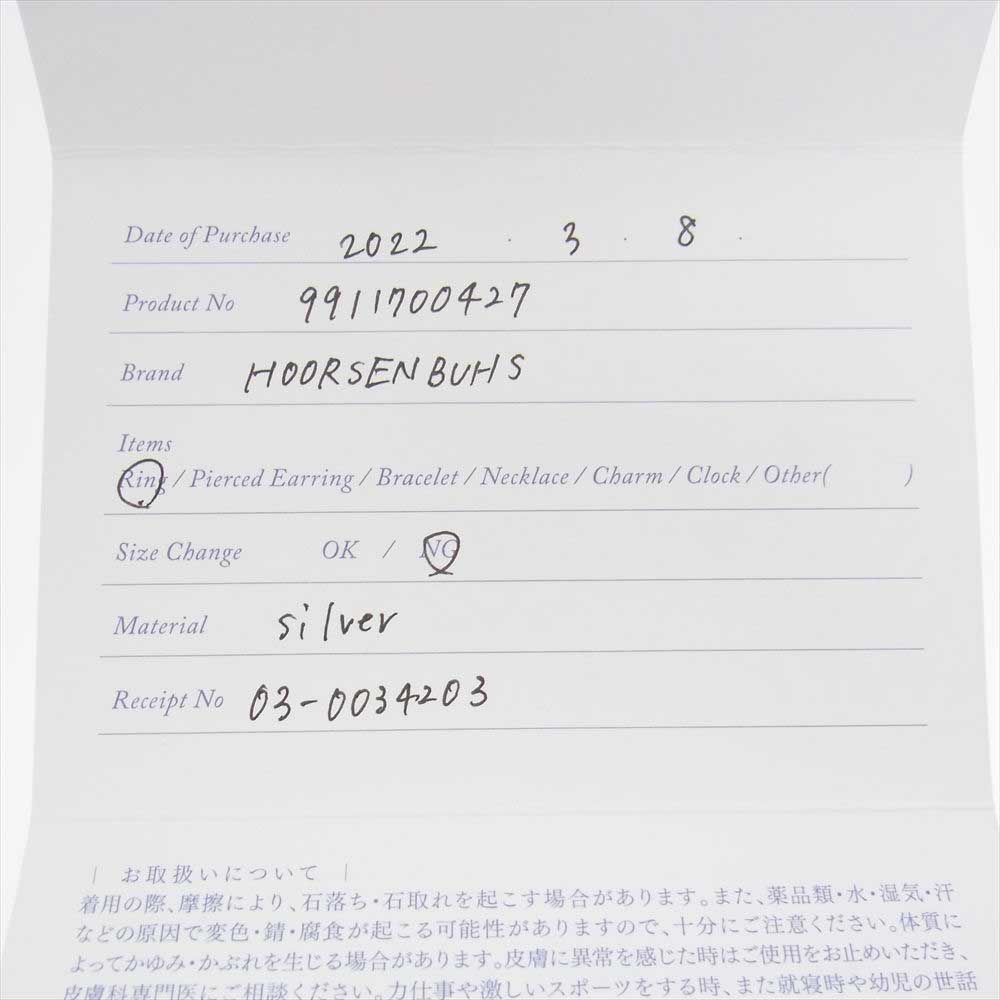 Date of Purchase 2022 . 3 . 8 .
Product No 9911700427
Brand HOORSENBUHS
Items
Ring / Pierced Earring / Bracelet / Necklace / Charm / Clock / Other( )
Size Change OK / NG
Material silver
Receipt No 03-0034203
| お取扱いについて |
着用の際、摩擦により、石落ち・石取れを起こす場合があります。また、薬品類・水・湿気・汗
などの原因で変色・錆・腐食が起こる可能性がありますので、十分にご注意ください。体質に
よってかゆみ・かぶれを生じる場合があります。皮膚に異常を感じた時はご使用をお止めいただき、
皮膚科専門医にご相談ください。力仕事や激しいスポーツをする時、また就寝時や幼児の世話